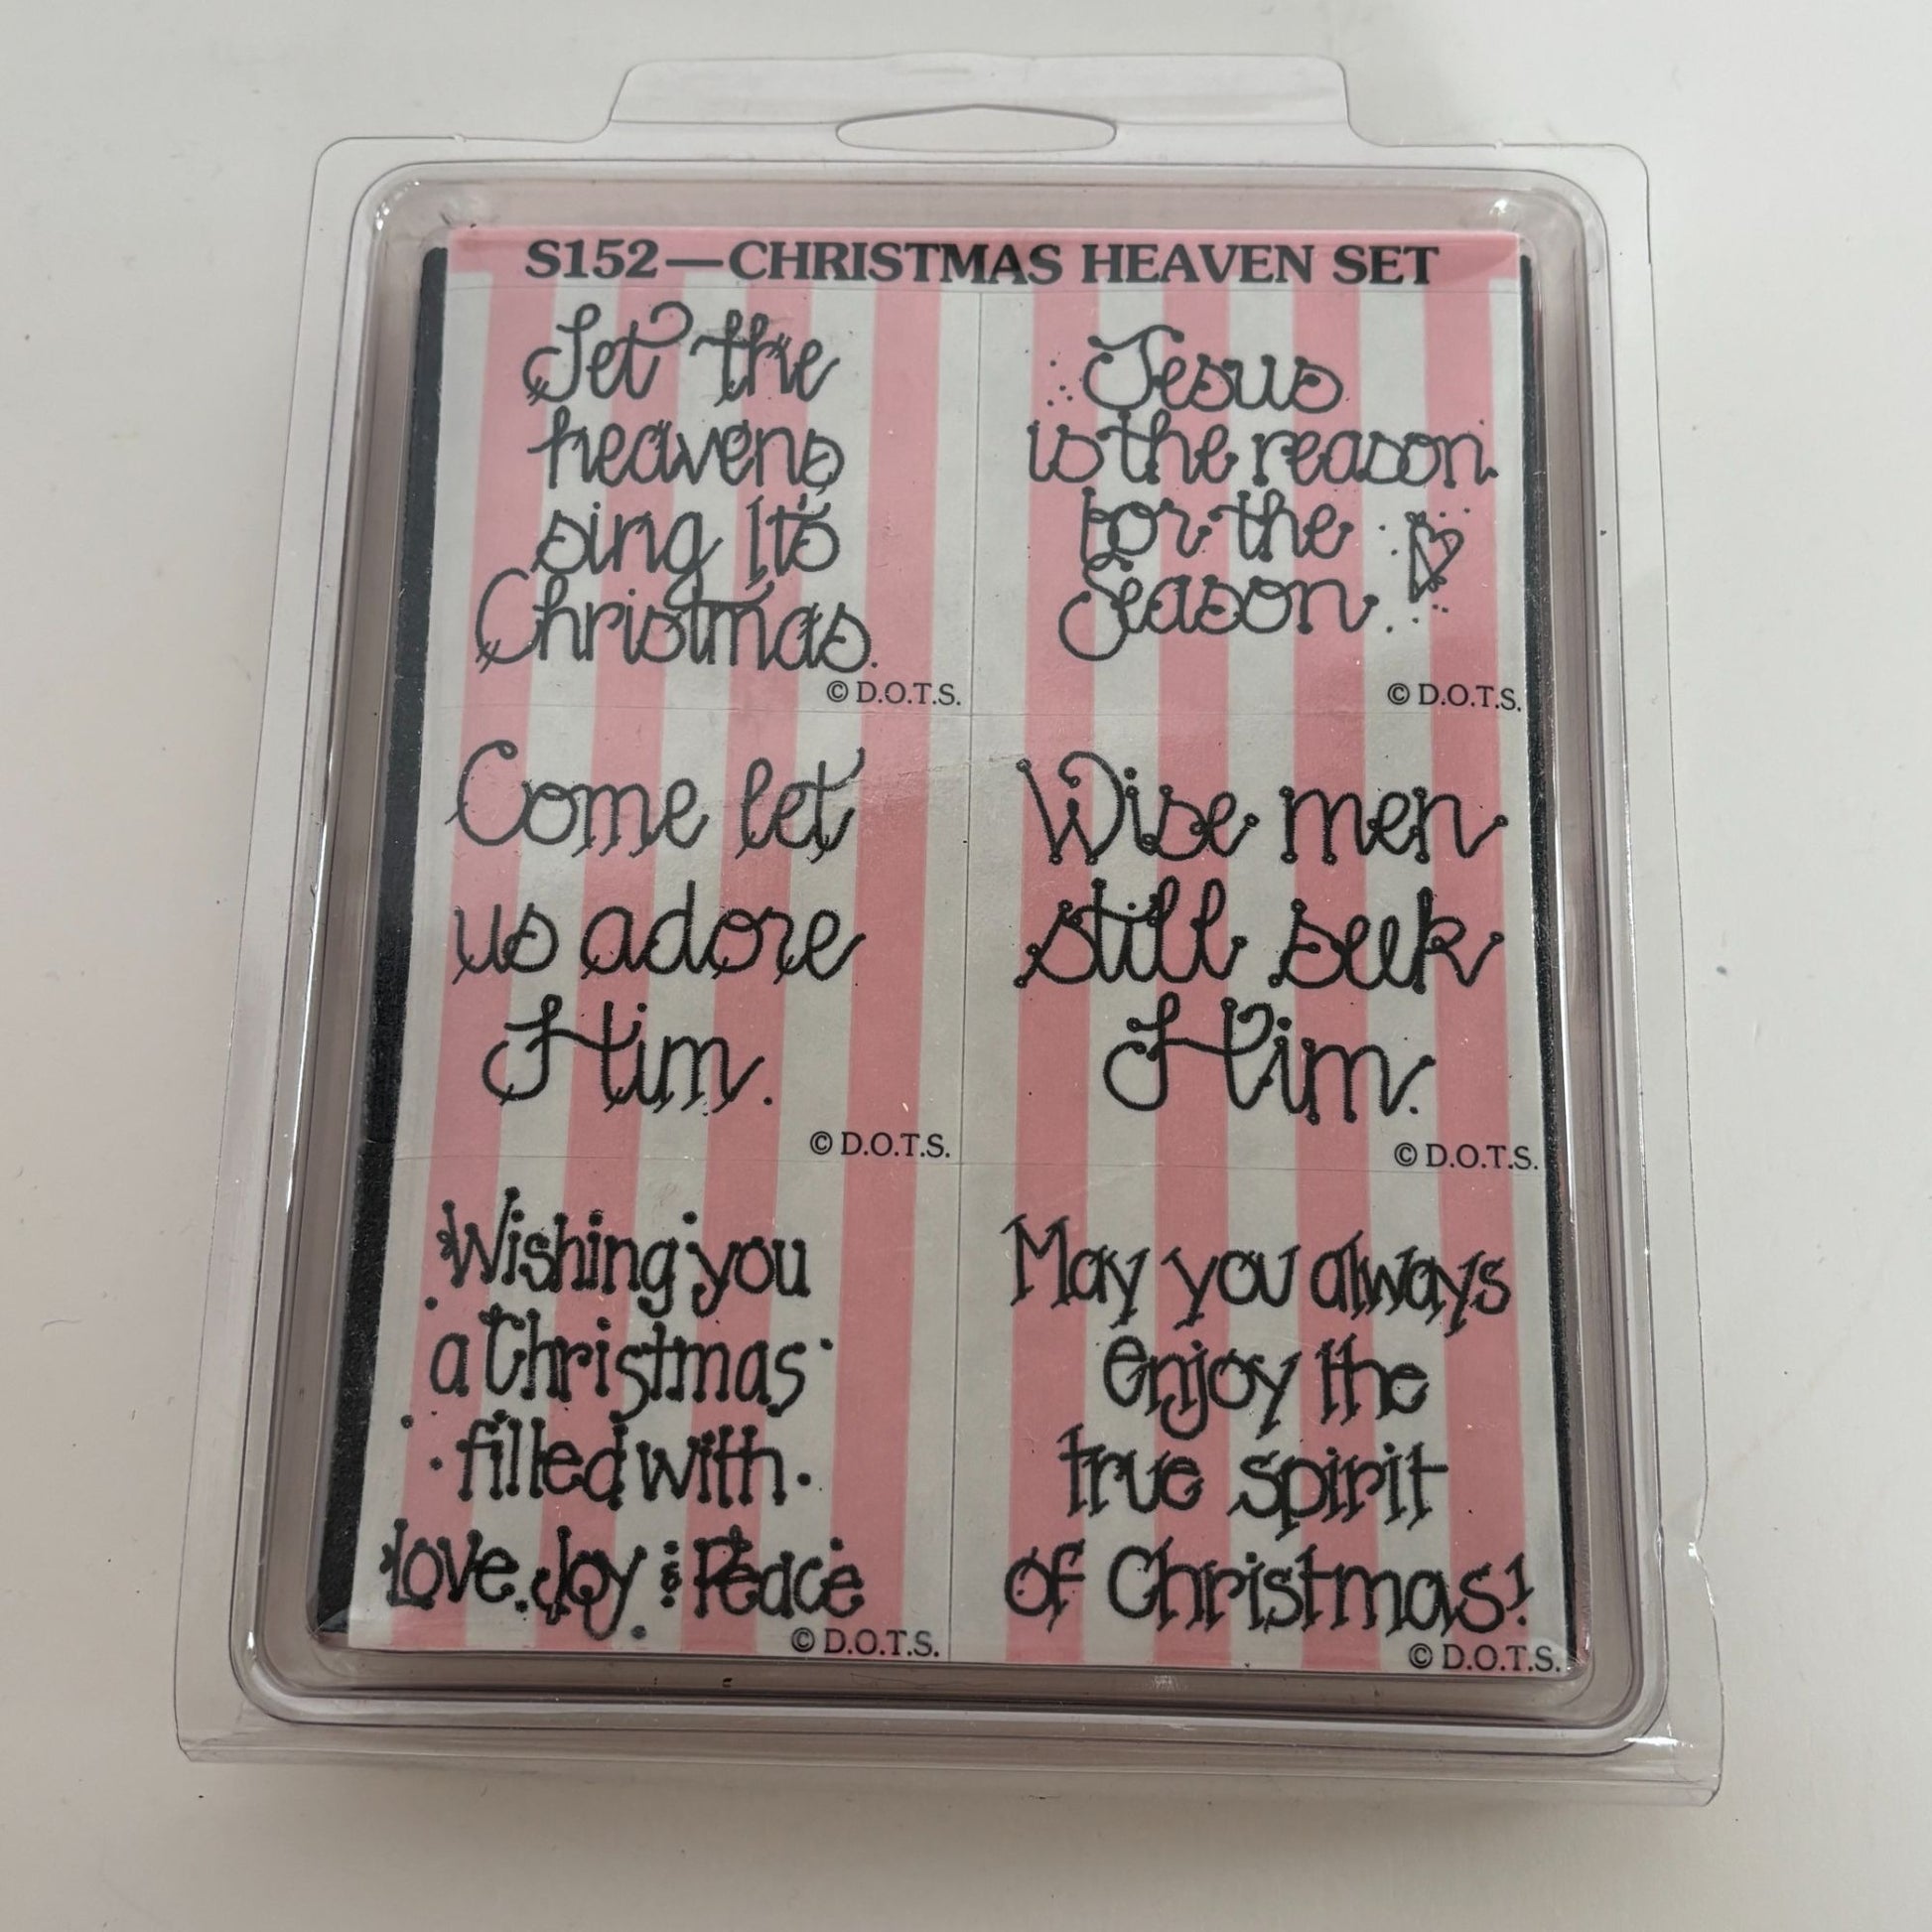 S152—CHRISTMAS HEAVEN SET
Let the
heavens
sing It's
Christmas.
© D.O.T.S.
Jesus
is the reason
for the
Season
© D.O.T.S.
Come let
us adore
Him.
© D.O.T.S.
Wise men
still seek
Him.
© D.O.T.S.
Wishing you
a Christmas
filled with
Love, Joy & Peace
© D.O.T.S.
May you always
enjoy the
true spirit
of Christmas!
© D.O.T.S.